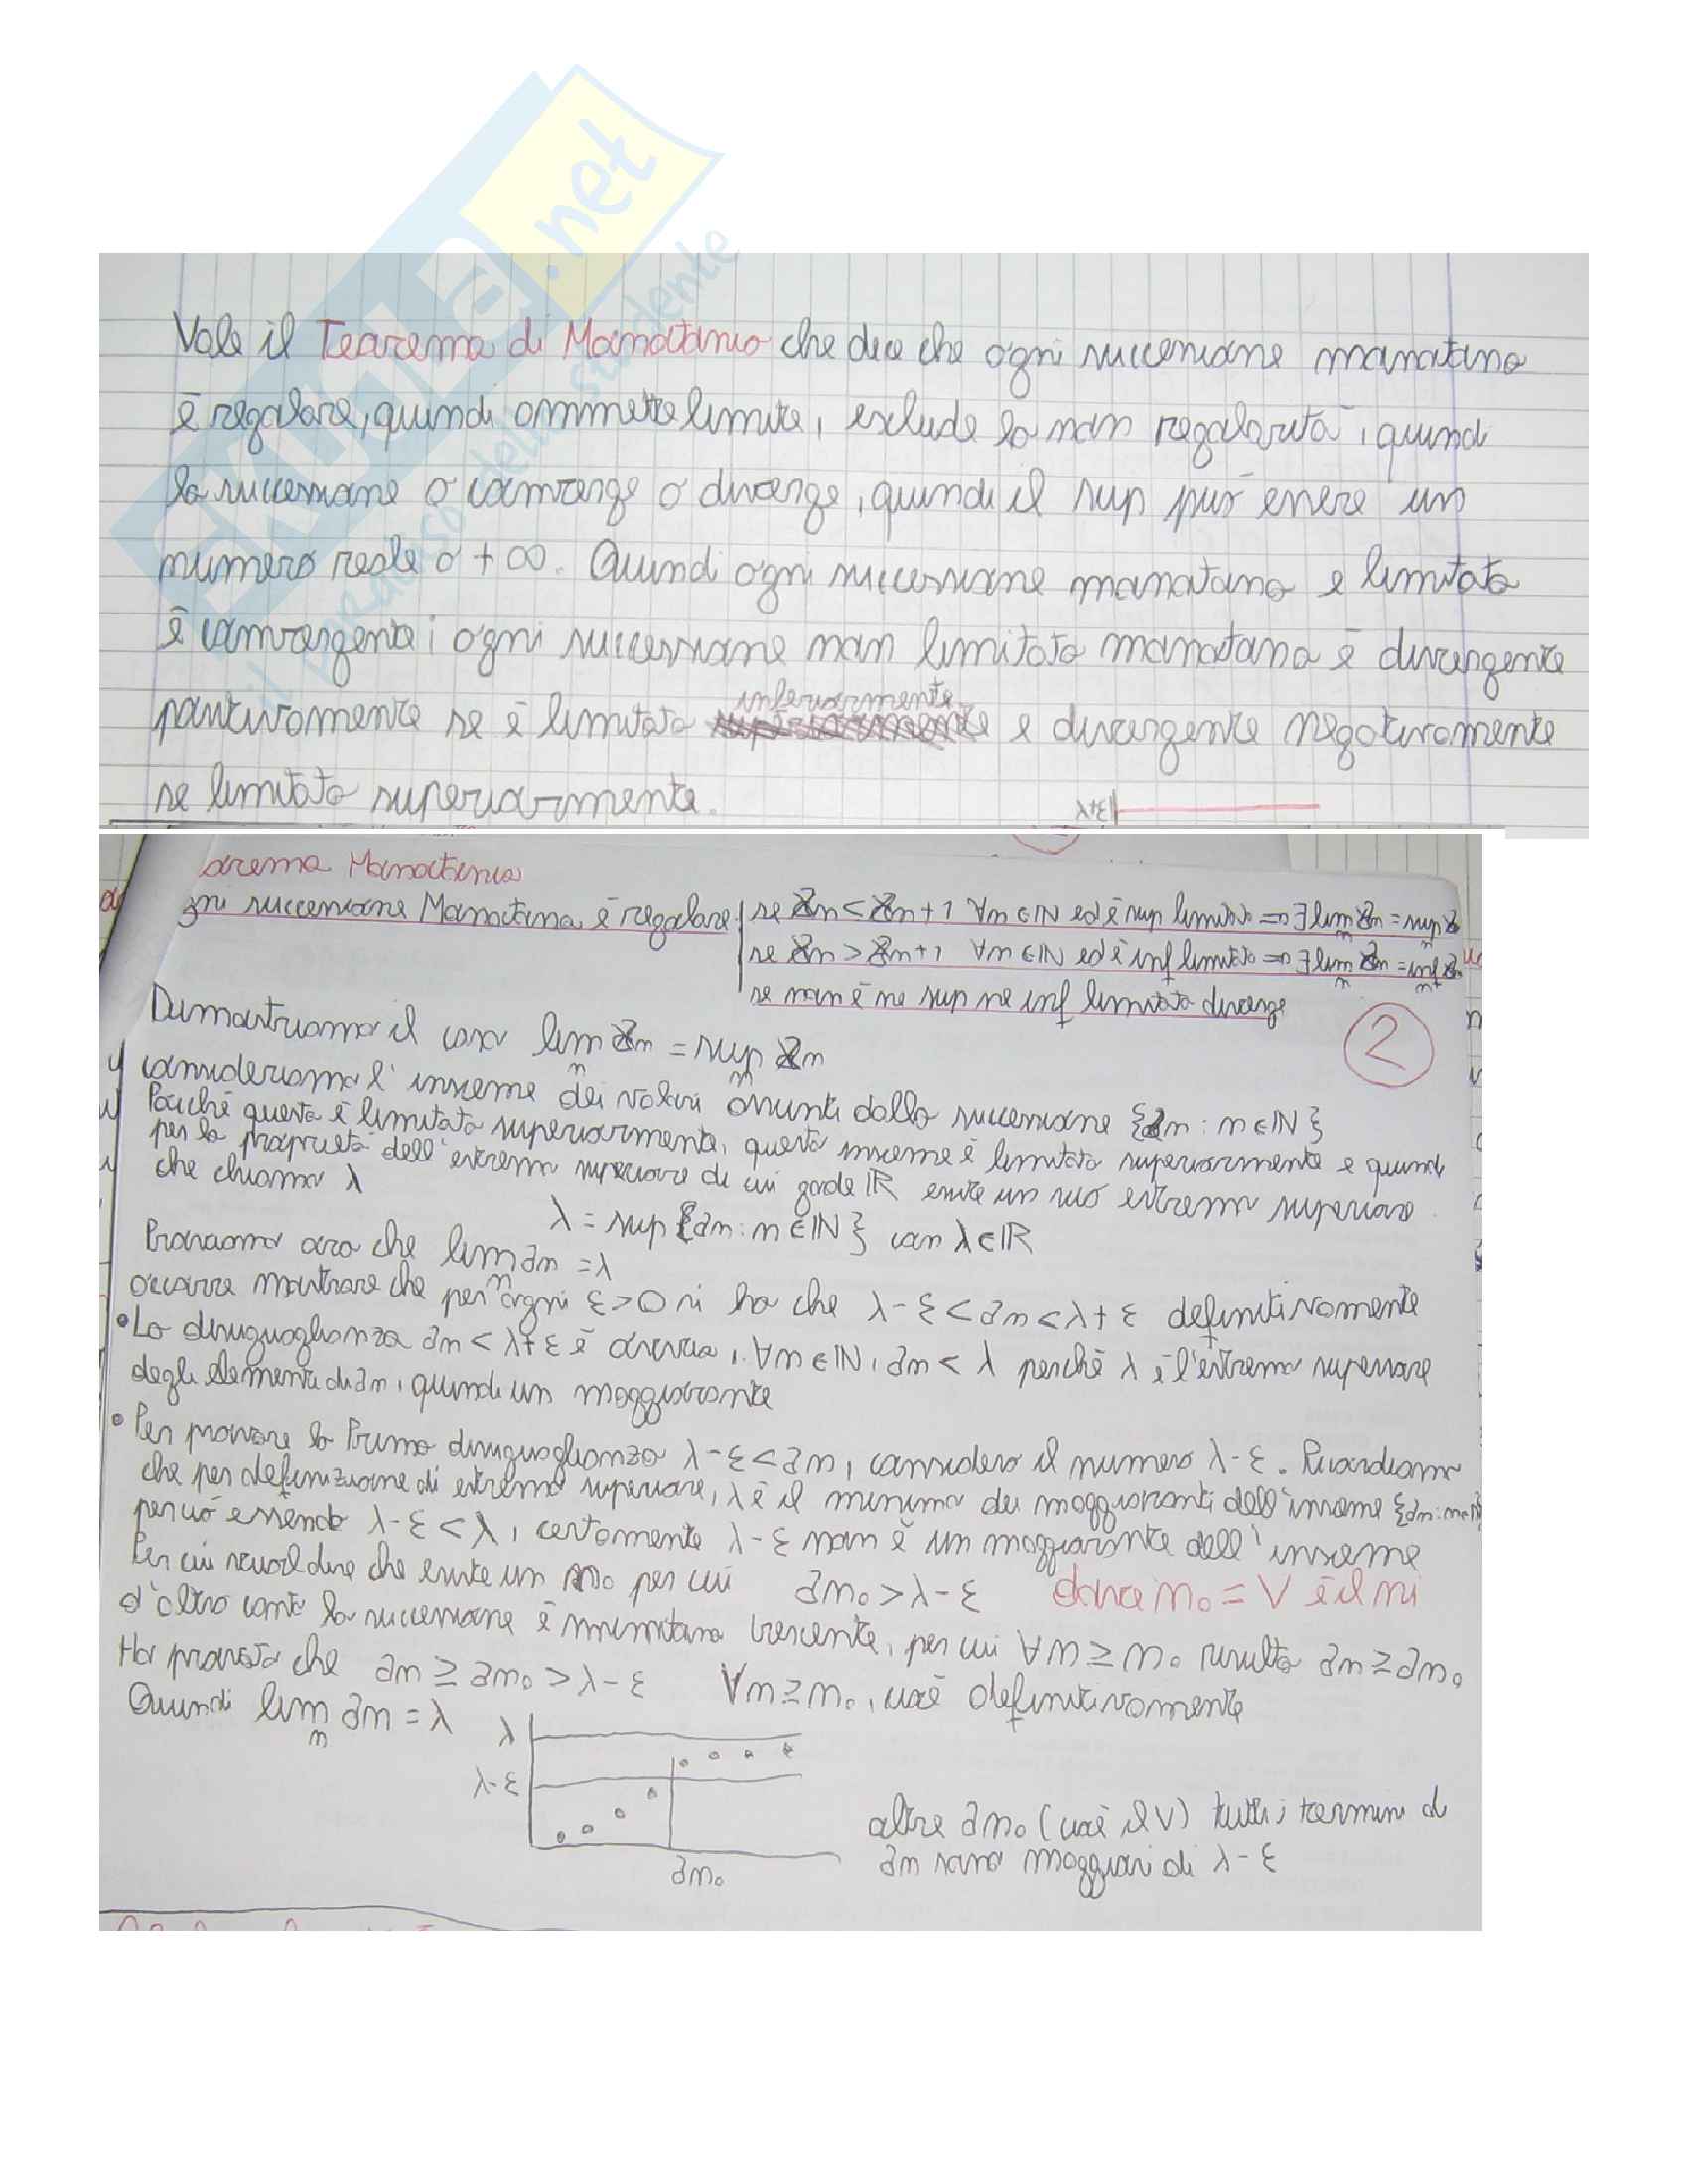 SKUOLA.net
il paradiso dello studente
Vale il Teorema di Monotonia che dice che ogni successione monotona
è regolare, quindi ammette limite, esclude la non regolarità, quindi
la successione o converge o diverge, quindi il sup può essere un
numero reale o +∞. Quindi ogni successione monotona e limitata
è convergente; ogni successione non limitata monotona è divergente
inferiormente
positivamente se è limitata superiormente e divergente negativamente
se limitata superiormente.
λ+ε
orema Monotonia
gni successione Monotona è regolare
se an < an+1 ∀n∈ℕ ed è sup limitata => ∃ lim an = sup a
n n
se an > an+1 ∀n∈ℕ ed è inf limitata => ∃ lim an = inf an
n n
se non è ne sup ne inf limitata diverge
2
Dimostriamo il caso lim an = sup an
n n
consideriamo l'insieme dei valori assunti dalla successione {an : n∈ℕ}
Poiché questa è limitata superiormente, questo insieme è limitato superiormente e quindi
per la proprietà dell'estremo superiore di cui gode ℝ esiste un suo estremo superiore
che chiamo λ
λ = sup {an : n∈ℕ} con λ∈ℝ
Proviamo ora che lim an = λ
n
occorre mostrare che per ogni ε>0 si ha che λ-ε < an < λ+ε definitivamente
• La disuguaglianza an < λ+ε è ovvia, ∀n∈ℕ, an < λ perchè λ è l'estremo superiore
degli elementi di an, quindi un maggiorante
• Per provare la Prima disuguaglianza λ-ε < an, considero il numero λ-ε. Ricordiamo
che per definizione di estremo superiore, λ è il minimo dei maggioranti dell'insieme {an : n∈ℕ}
perciò essendo λ-ε < λ, certamente λ-ε non è un maggiorante dell'insieme
Per cui vuol dire che esiste un n₀ per cui an₀ > λ-ε dove n₀ = V è il ni
d'altro canto la successione è crescente, per cui ∀n ≥ n₀ risulta an ≥ an₀
Ho provato che an ≥ an₀ > λ-ε ∀n ≥ n₀, cioè definitivamente
Quindi lim an = λ
n
λ
λ-ε
an₀
oltre an₀ (cioè il V) tutti i termini di
an sono maggiori di λ-ε